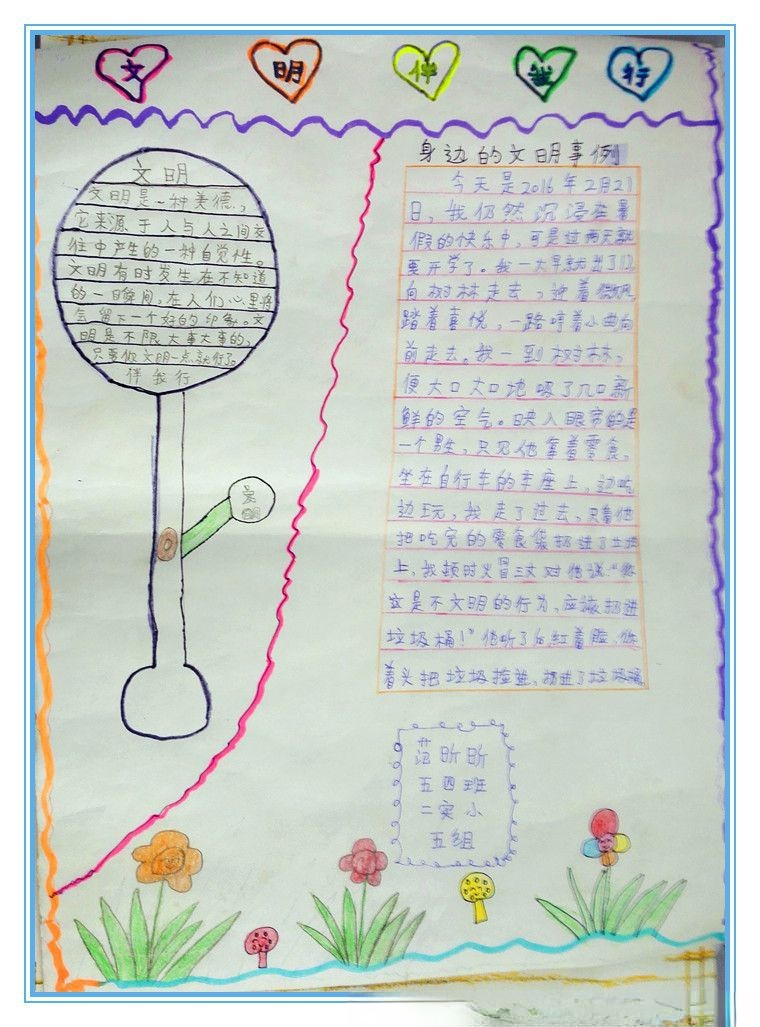 文明伴我行
文明
文明是一种美德,
它来源于人与人之间交
往中产生的一种自觉性。
文明有时发生在不知道
的一日瞬间,在人们心里将
会留下一个好的印象。文
明是不限大事大事的,
只要你文明一点就行了。
伴我行
身边的文明事例
今天是2016年2月21
日,我仍然沉浸在暑
假的快乐中,可是过两天就
要开学了。我一大早就出了门
向树林走去,迎着微风
踏着喜悦,一路哼着小曲向
前走去。我一到树林,
便大口大口地吸了几口新
鲜的空气。映入眼帘的是
一个男生,只见他拿着零食,
坐在自行车的车座上,边吃
边玩,我走了过去,只看他
把吃完的零食袋扔进了土地
上,我顿时火冒三丈对他说:“你
这是不文明的行为,应该扔进
垃圾桶!”他听了后,红着脸,低
着头把垃圾捡进,扔进了垃圾桶
范昕昕
五四班
二实小
五组